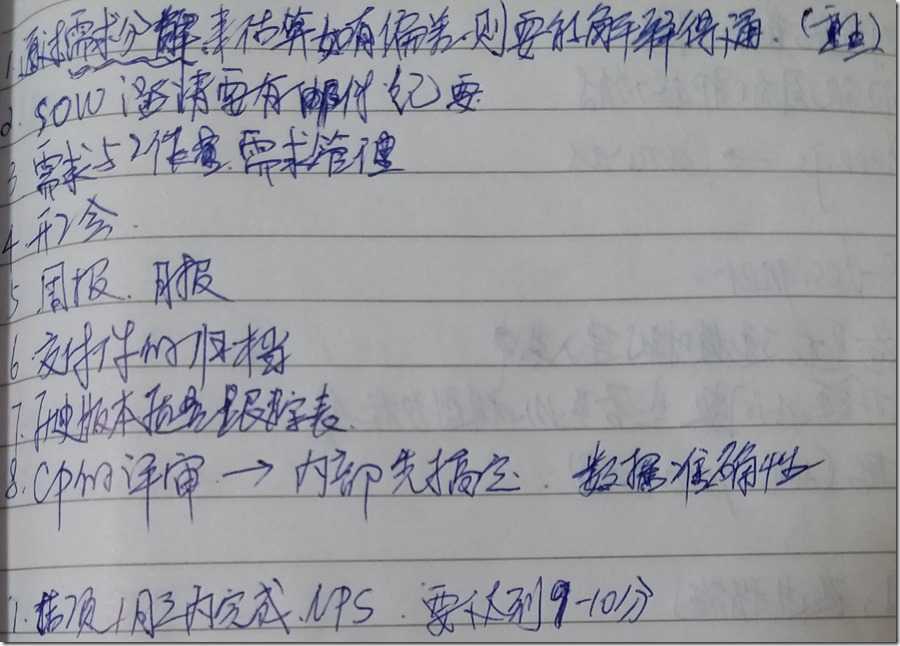 1. 通过需求分解来估算如有偏差,则要能解释得通.(重点)
2. SOW 澄清要有邮件纪要
3 需求与工作量.需求管理
4. 开工会.
5 周报. 月报
6. 交付件的归档
7. 版本质量跟踪表.
8. CP的评审 → 内部先搞定. 数据准确性
1. 结项1月之内完成.NPS. 要达到9-10分